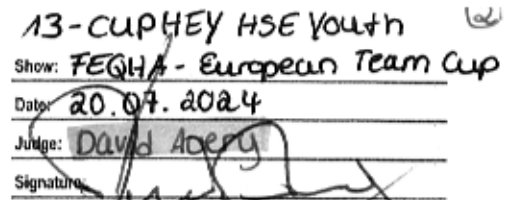 13-CUPHEY HSE Youth
2
Show: FEQHA - European Team Cup
Date: 20.07.2024
Judge: David Avery
Signature: